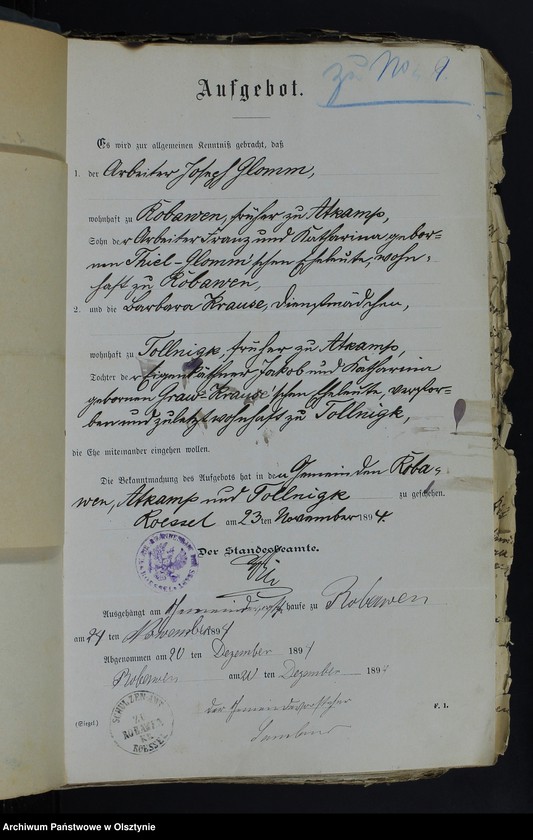 zu No 9.
Aufgebot.
Es wird zur allgemeinen Kenntniß gebracht, daß
1. der Arbeiter Joseph Glomm,
wohnhaft zu Robawen, früher zu Atkamp,
Sohn der Arbeiter Franz und Katharina gebor-
nen Thiel-Glomm'schen Eheleute, wohn-
haft zu Robawen,
2. und die Barbara Krause, Dienstmädchen,
wohnhaft zu Tollnigk, früher zu Atkamp,
Tochter der Eigenkäthner Jakob und Katharina
gebornen Graw-Krause'schen Eheleute, verstor-
ben und zuletzt wohnhaft zu Tollnigk,
die Ehe miteinander eingehen wollen.
Die Bekanntmachung des Aufgebots hat in den Gemeinden Roba-
wen, Atkamp und Tollnigk zu geschehen.
Roessel am 23ten November 1894.
Der Standesbeamte.
Ausgehängt am Gemeinde hause zu Robawen
am 24 ten November 1894
Abgenommen am 20 ten Dezember 1894
Robawen am 20 ten Dezember 189
(Siegel) SCHULZENAMT ZU ROBAWEN KR. ROESSEL
der Gemeindevorsteher
F. 1.
Archiwum Państwowe w Olsztynie